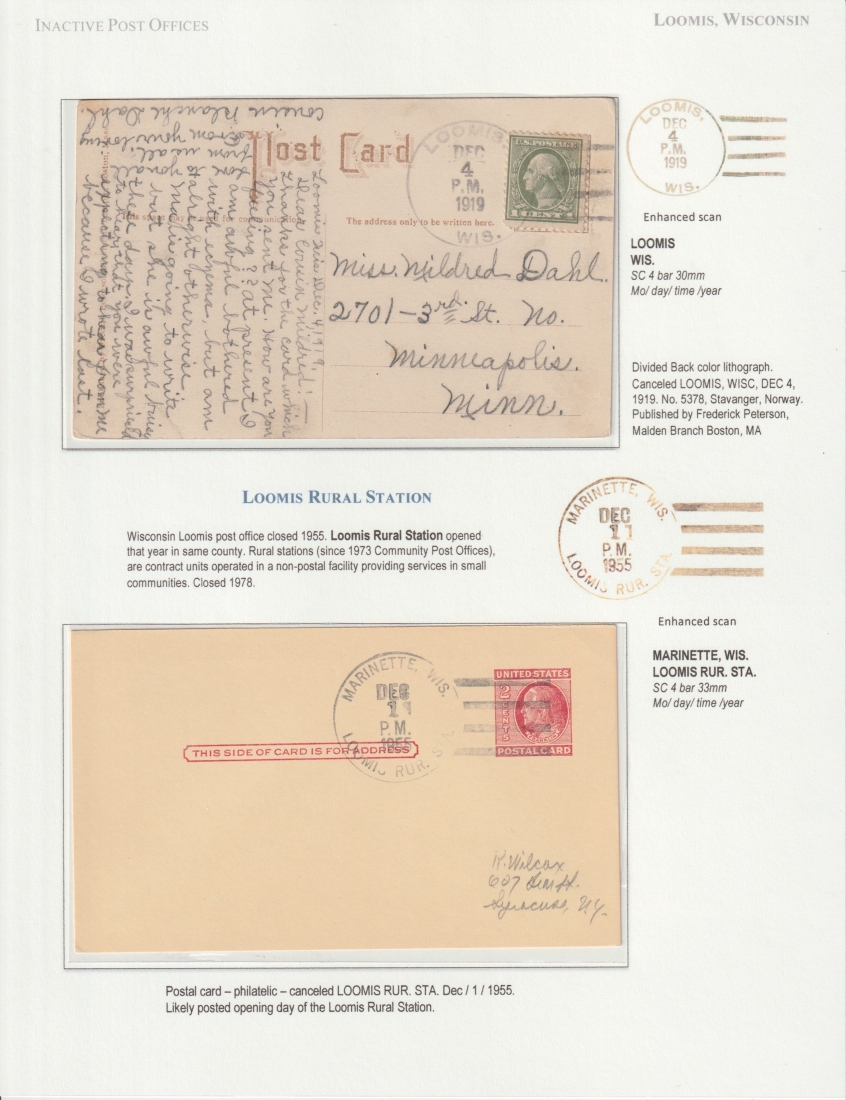 INACTIVE POST OFFICES
LOOMIS, WISCONSIN
Post Card
The address only to be written here.
LOOMIS,
DEC
4
P.M.
1919
WIS.
U.S. POSTAGE
Miss. Mildred Dahl.
2701-3rd. St. No.
Minneapolis.
Minn.
Loomis Wis. Dec. 4, 1919.
Dear Cousin Mildred! —
Thanks for the card which
you sent me. How are you
feeling? at present I
am awful bothered
with eczema, but am
alright otherwise.
is going to write
but she is awful busy
these days. I was surprised
to hear that you were
expecting to hear from me
because I wrote last.
love to you
from us all.
From your loving
cousin Blanche Dahl.
LOOMIS,
DEC
4
P.M.
1919
WIS.
Enhanced scan
LOOMIS
WIS.
SC 4 bar 30mm
Mo/ day/ time /year
Divided Back color lithograph.
Canceled LOOMIS, WISC, DEC 4,
1919. No. 5378, Stavanger, Norway.
Published by Frederick Peterson,
Malden Branch Boston, MA
LOOMIS RURAL STATION
Wisconsin Loomis post office closed 1955. Loomis Rural Station opened
that year in same county. Rural stations (since 1973 Community Post Offices),
are contract units operated in a non-postal facility providing services in small
communities. Closed 1978.
MARINETTE, WIS.
DEC
11
P.M.
1955
LOOMIS RUR. STA.
Enhanced scan
MARINETTE, WIS.
LOOMIS RUR. STA.
SC 4 bar 33mm
Mo/ day/ time /year
MARINETTE, WIS.
DEC
11
P.M.
1955
LOOMIS RUR. STA.
UNITED STATES
2 CENTS
POSTAL CARD
THIS SIDE OF CARD IS FOR ADDRESS
R. Wilcox
607
Syracuse, N.Y.
Postal card – philatelic – canceled LOOMIS RUR. STA. Dec / 1 / 1955.
Likely posted opening day of the Loomis Rural Station.